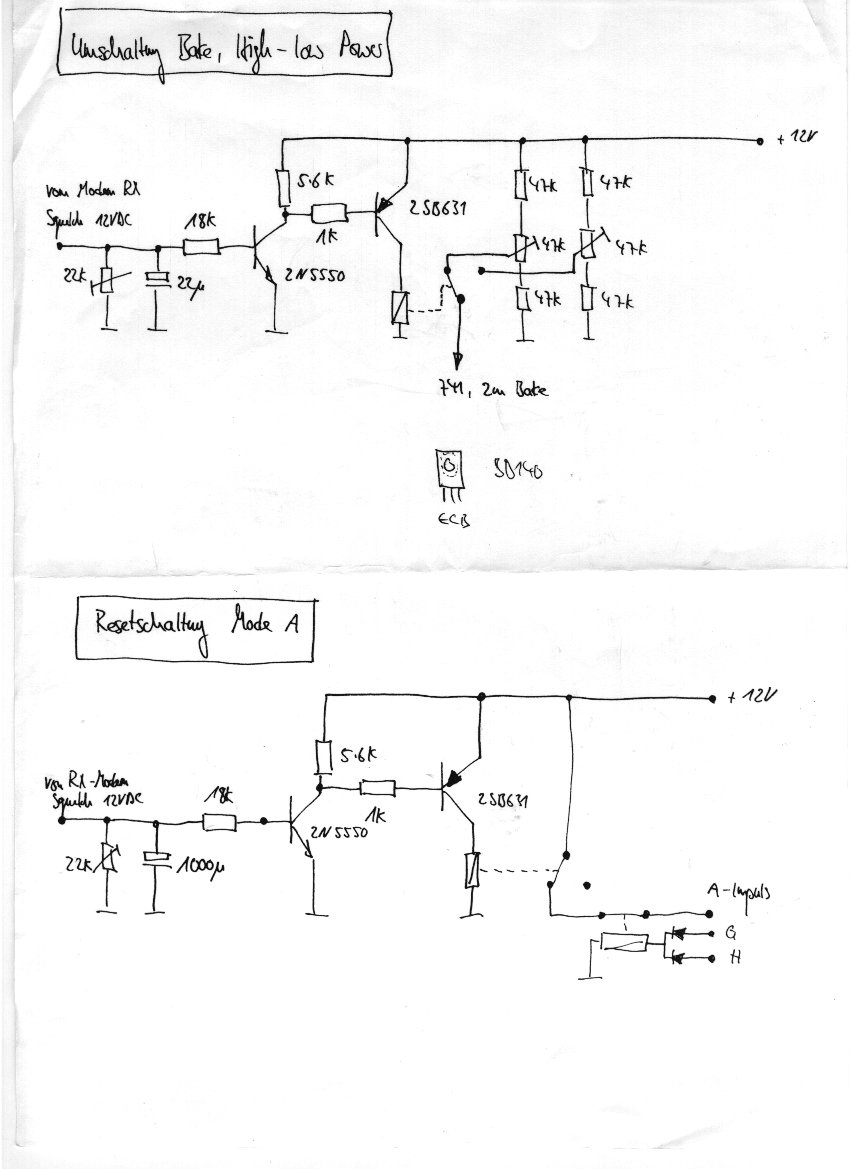 Umschaltung Bake, High-low Power
+ 12V
5.6K
47K
47K
vom Modem RX
Squelch 12VDC
18K
1K
2SB631
47K
47K
22K
22µ
2N5550
47K
47K
741, 2m Bake
BD140
ECB
Resetschaltung Mode A
+ 12V
5.6K
von RX-Modem
Squelch 12VDC
18K
1K
2SB631
2N5550
22K
1000µ
A-Impuls
G
H